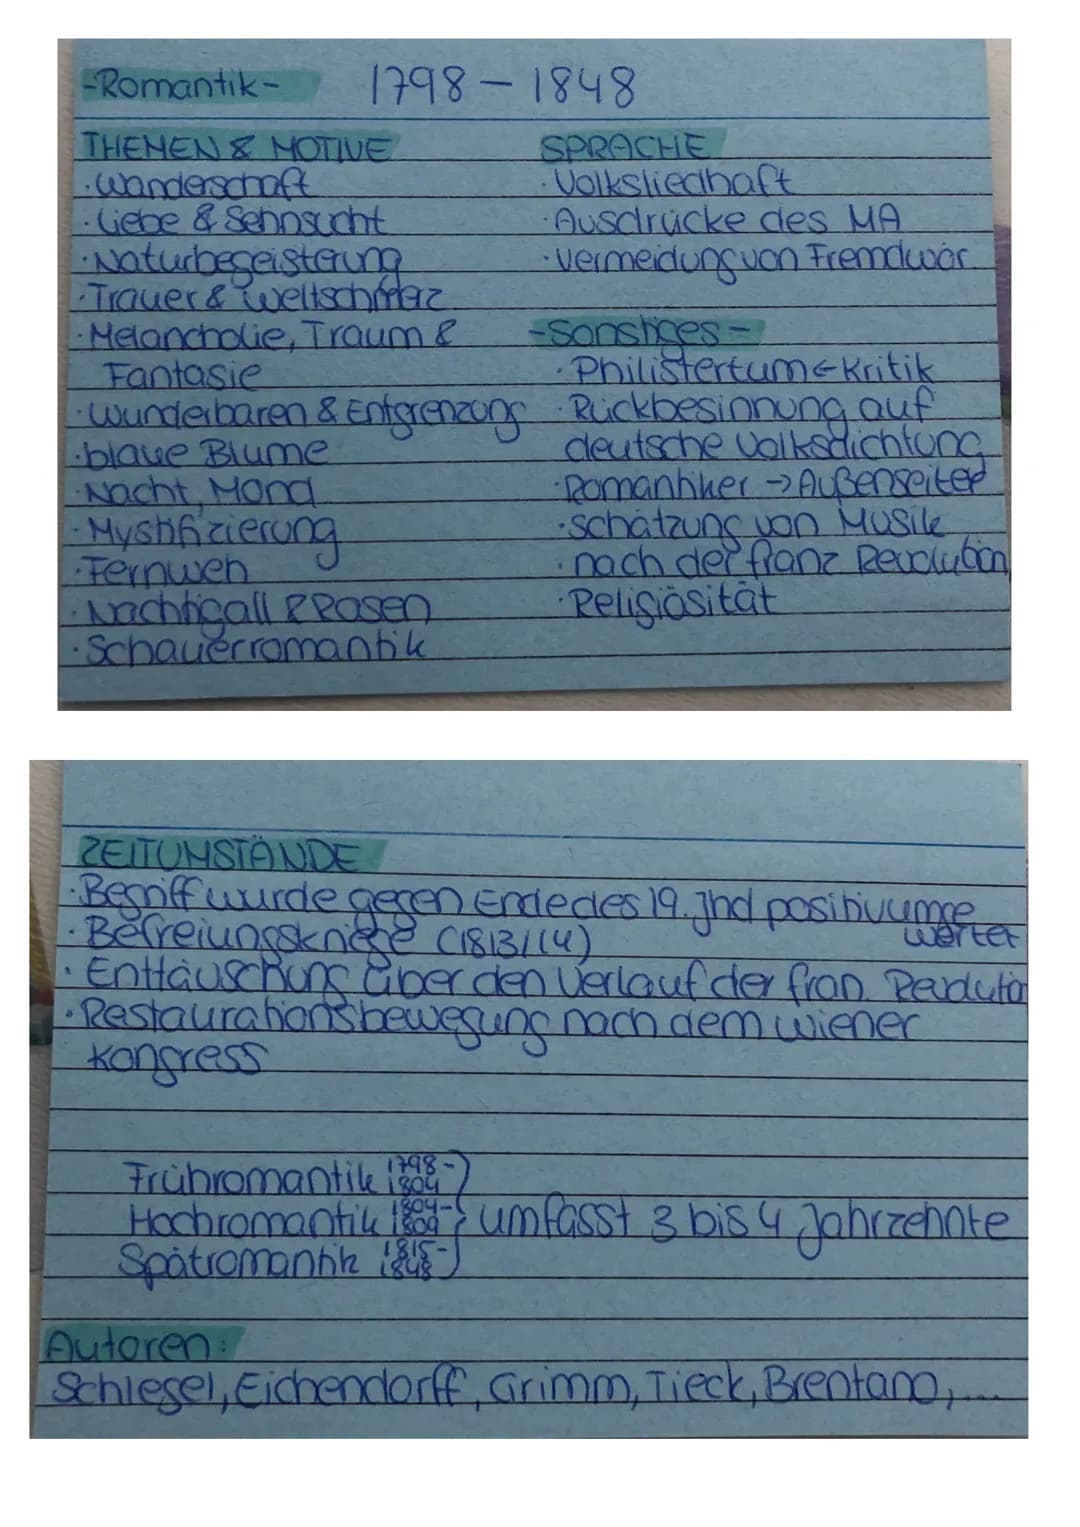 -Romantik- 1798 – 1848
THEMEN & MOTIVE
· Wanderschaft
· Liebe & Sehnsucht
· Naturbegeisterung
· Trauer & Weltschmerz
· Melancholie, Traum &
Fantasie
· Wunderbaren & Entgrenzung
· blaue Blume
· Nacht, Mond
· Mystifizierung
· Fernweh
· Nachtigall & Rosen
· Schauerromantik
SPRACHE
· Volksliedhaft
· Ausdrücke des MA
· Vermeidung von Fremdwör.
-Sonstiges-
· Philistertum←Kritik
· Rückbesinnung auf
deutsche Volksdichtung
· Romantiker → Außenseiter
· Schätzung von Musik
· nach der franz Revolution
· Religiösität
ZEITUMSTÄNDE
· Begriff wurde gegen Ende des 19. Jhd positiv umge
wertet
· Befreiungskriege (1813/14)
· Enttäuschung über den Verlauf der fran. Revolution
· Restaurationsbewegung nach dem wiener
kongress
Frühromantik 1798-1804
Hochromantik 1804-1809 } umfasst 3 bis 4 Jahrzehnte
Spätromantik 1815-1848
Autoren:
Schlegel, Eichendorff, Grimm, Tieck, Brentano,...